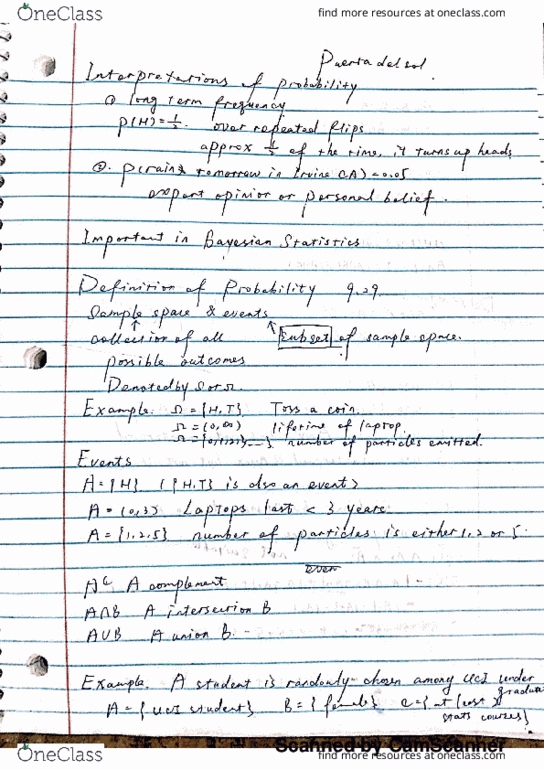 OneClass
find more resources at oneclass.com
Puerta del sol
Interpretations of probability
① long term frequency
P(H)=½. over repeated flips
approx ½ of the time, it turns up heads
②. P(rains tomorrow in Irvine CA) = 0.05
expert opinion or personal belief.
Important in Bayesian Statistics
Definition of Probability 9.29
Sample space & events
collection of all subset of sample space.
possible outcomes
Denoted by S or Ω.
Example. Ω = {H,T} Toss a coin.
Ω = (0,∞) lifetime of laptop.
Ω = {0,1,2,...} number of particles emitted.
Events
A = {H} ({H,T} is also an event)
A = (0,3) Laptops last < 3 years.
A = {1,2,5} number of particles is either 1,2 or 5.
even
Aᶜ A complement
A∩B A intersection B
A∪B A union B.
Example. A student is randomly chosen among UCI under
graduate
A = {UCI student} B = {female} C = {at least
stats courses}
Scanned by CamScanner
OneClass
find more resources at oneclass.com